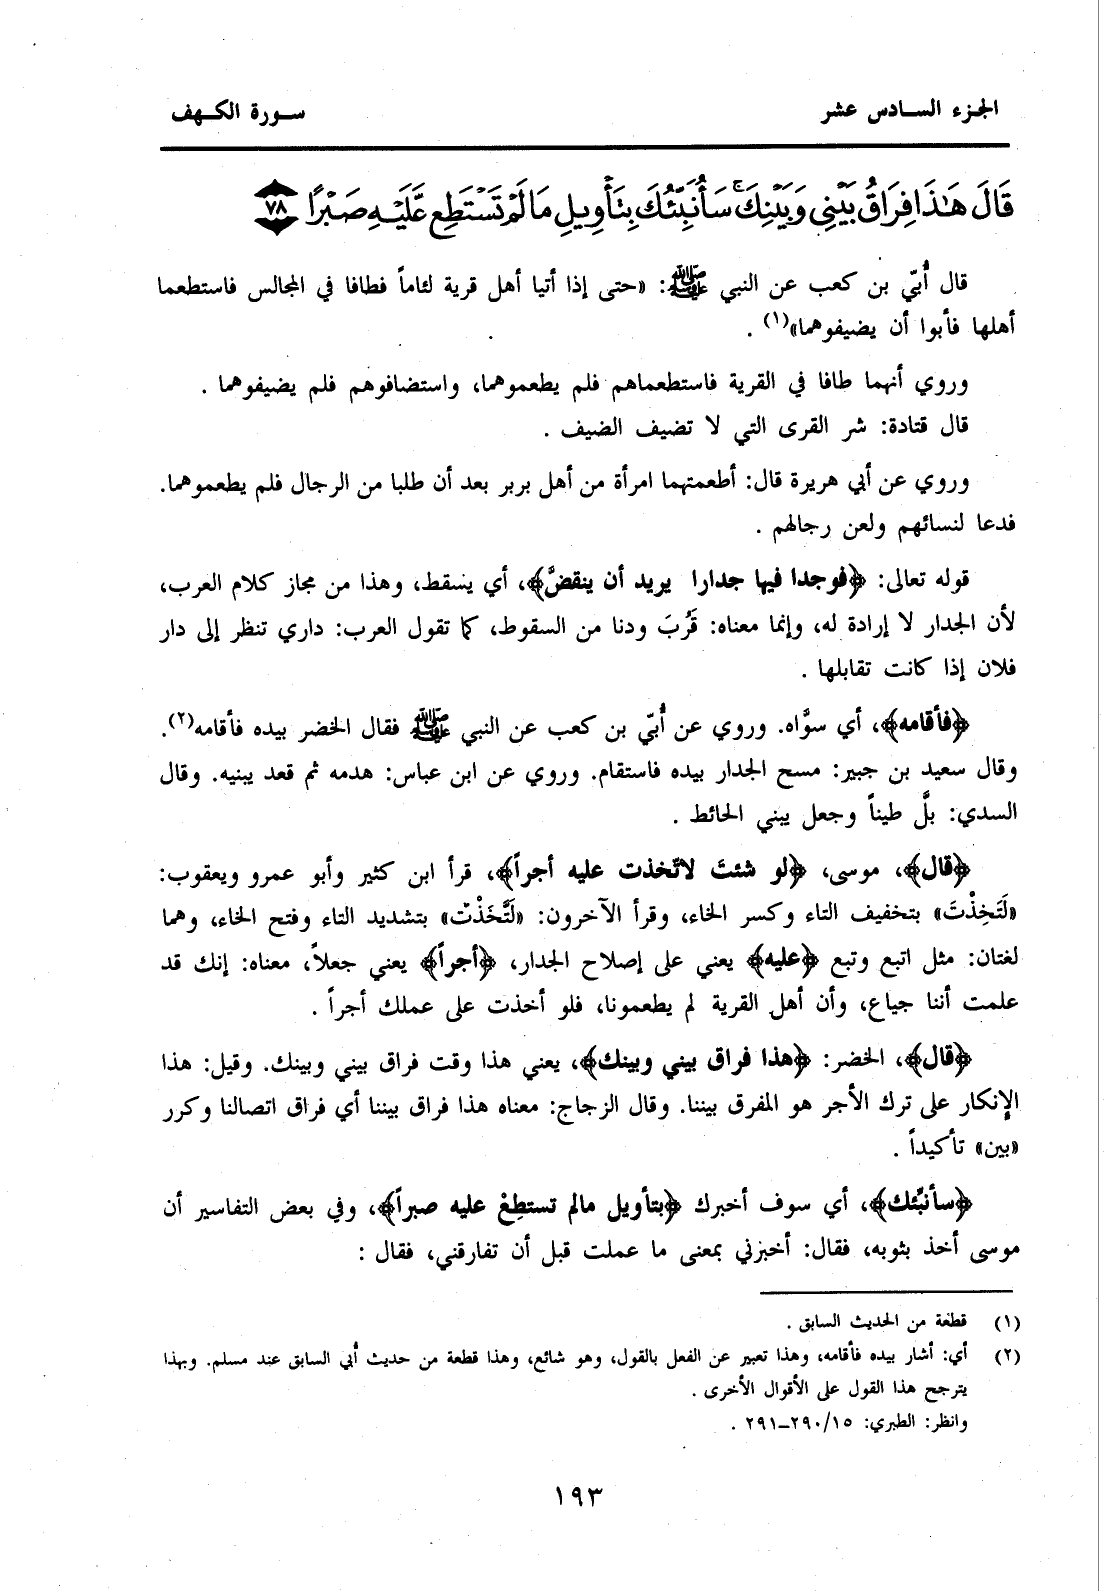 الجزء السادس عشر
سورة الكهف
قَالَ هَٰذَا فِرَاقُ بَيْنِي وَبَيْنِكَ ۚ سَأُنَبِّئُكَ بِتَأْوِيلِ مَا لَمْ تَسْتَطِع عَّلَيْهِ صَبْرًا ٧٨
قال أُبيّ بن كعب عن النبي ﷺ: «حتى إذا أتيا أهل قرية لئاماً فطافا في المجالس فاستطعما
أهلها فأبوا أن يضيفوهما»(١) .
وروي أنهما طافا في القرية فاستطعماهم فلم يطعموهما، واستضافوهم فلم يضيفوهما .
قال قتادة: شر القرى التي لا تضيف الضيف .
وروي عن أبي هريرة قال: أطعمتهما امرأة من أهل بربر بعد أن طلبا من الرجال فلم يطعموهما.
فدعا لنسائهم ولعن رجالهم .
قوله تعالى: ﴿فوجدا فيها جدارا يريد أن ينقضَّ﴾، أي يسقط، وهذا من مجاز كلام العرب،
لأن الجدار لا إرادة له، وإنما معناه: قَرُبَ ودنا من السقوط، كما تقول العرب: داري تنظر إلى دار
فلان إذا كانت تقابلها .
﴿فأقامه﴾، أي سوَّاه. وروي عن أُبيّ بن كعب عن النبي ﷺ فقال الخضر بيده فأقامه(٢).
وقال سعيد بن جبير: مسح الجدار بيده فاستقام. وروي عن ابن عباس: هدمه ثم قعد يبنيه. وقال
السدي: بلَّ طيناً وجعل يبني الحائط .
﴿قال﴾، موسى، ﴿لو شئتَ لاتّخذت عليه أجراً﴾، قرأ ابن كثير وأبو عمرو ويعقوب:
«لَتَخِذْتَ» بتخفيف التاء وكسر الخاء، وقرأ الآخرون: «لَتَّخَذْتَ» بتشديد التاء وفتح الخاء، وهما
لغتان: مثل اتبع وتبع ﴿عليه﴾ يعني على إصلاح الجدار، ﴿أجراً﴾ يعني جعلاً، معناه: إنك قد
علمت أننا جياع، وأن أهل القرية لم يطعمونا، فلو أخذت على عملك أجراً .
﴿قال﴾، الخضر: ﴿هذا فراق بيني وبينك﴾، يعني هذا وقت فراق بيني وبينك. وقيل: هذا
الإنكار على ترك الأجر هو المفرق بيننا. وقال الزجاج: معناه هذا فراق بيننا أي فراق اتصالنا وكرر
«بين» تأكيداً .
﴿سأنبِّئك﴾، أي سوف أخبرك ﴿بتأويل مالم تستطِعْ عليه صبراً﴾، وفي بعض التفاسير أن
موسى أخذ بثوبه، فقال: أخبرني بمعنى ما عملت قبل أن تفارقني، فقال :
(١) قطعة من الحديث السابق .
(٢) أي: أشار بيده فأقامه، وهذا تعبير عن الفعل بالقول، وهو شائع، وهذا قطعة من حديث أبي السابق عند مسلم. وبهذا
يترجح هذا القول على الأقوال الأخرى .
وانظر: الطبري: ١٥/٢٩٠–٢٩١ .
١٩٣